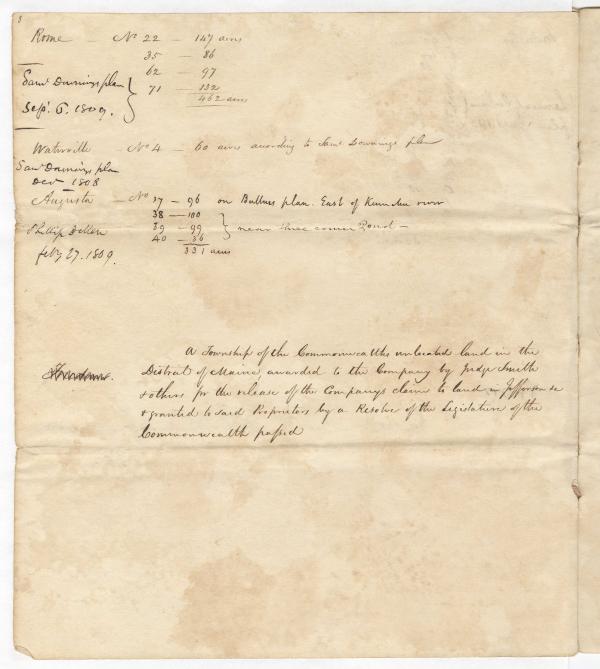 8
Rome - No 22 - 147 acres
35 - 86
62 - 97
71 - 132
462 acres
Saml Downings plan
Sepr. 6. 1809.
Waterville - No 4 - 60 acres according to Saml Downings plan
Saml Downings plan
Decr 1808
Augusta - No 37 - 96 on Ballard plan. East of Kennebec river
38 - 100
39 - 99 } near three corner Pond -
40 - 36
331 acres
Phillip
feby 27. 1809.
A Township of the Commonwealths unlocated land in the
District of Maine, awarded to the Company by Judge Smith
& others for the release of the Companys claim to land in Jefferson &c
& granted to said Proprietors by a Resolve of the Legislature of the
Commonwealth passed